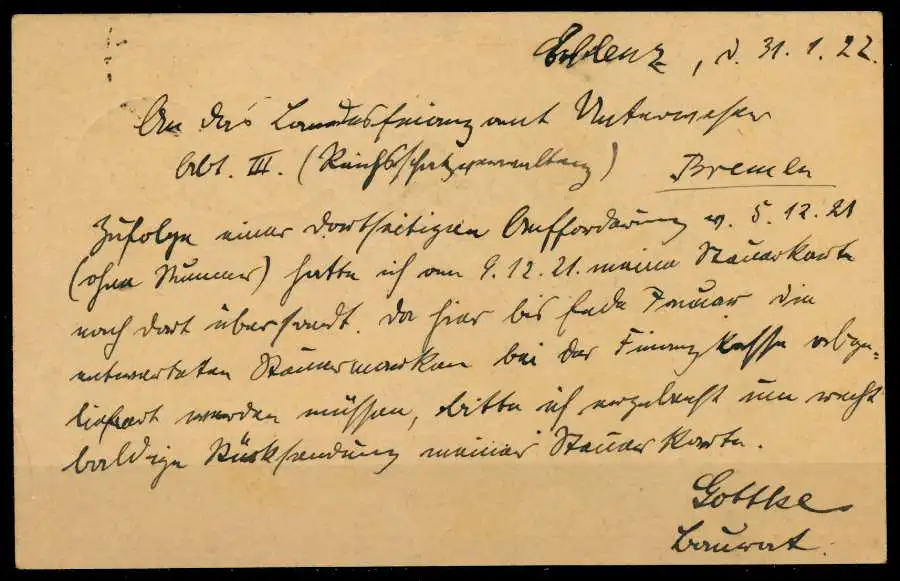 Coblenz, d. 31.1.22.
An das Landesfinanzamt Unterweser
Abt. III. (Reichsschatzverwaltung)
Bremen
Zufolge einer dortseitigen Aufforderung v. 5.12.21
(ohne Nummer) hatte ich am 9.12.21. meine Steuerkarte
nach dort übersandt. Da hier bis Ende Januar die
entwerteten Steuermarken bei der Finanzkasse abge-
liefert werden müssen, bitte ich ergebenst um recht
baldige Rücksendung meiner Steuerkarte.
Gottke
Baurat.